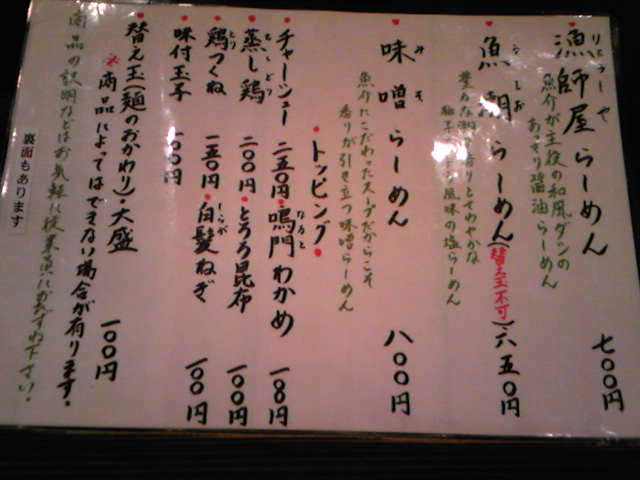 漁師屋らーめん 七〇〇円
りょうしや
魚介が主役の和風ダシの
あっさり醤油らーめん
魚潮らーめん(替え玉不可)六五〇円
うしお
豊かな潮の香りとさわやかな
風味の塩らーめん
味噌らーめん 八〇〇円
みそ
魚介にこだわったスープだからこそ
香りが引き立つ味噌らーめん
・トッピング・
チャーシュー 二五〇円
・鳴門わかめ 一〇〇円
なると
蒸し鶏 二〇〇円
むしどり
・とろろ昆布 一〇〇円
鶏つくね 一五〇円
とり
・白髪ねぎ 一〇〇円
しらが
味付玉子 一〇〇円
替え玉(麺のおかわり)・大盛 一〇〇円
※商品によってはできない場合が有ります。
商品の説明などはお気軽に従業員におたずね下さい。
裏面もあります